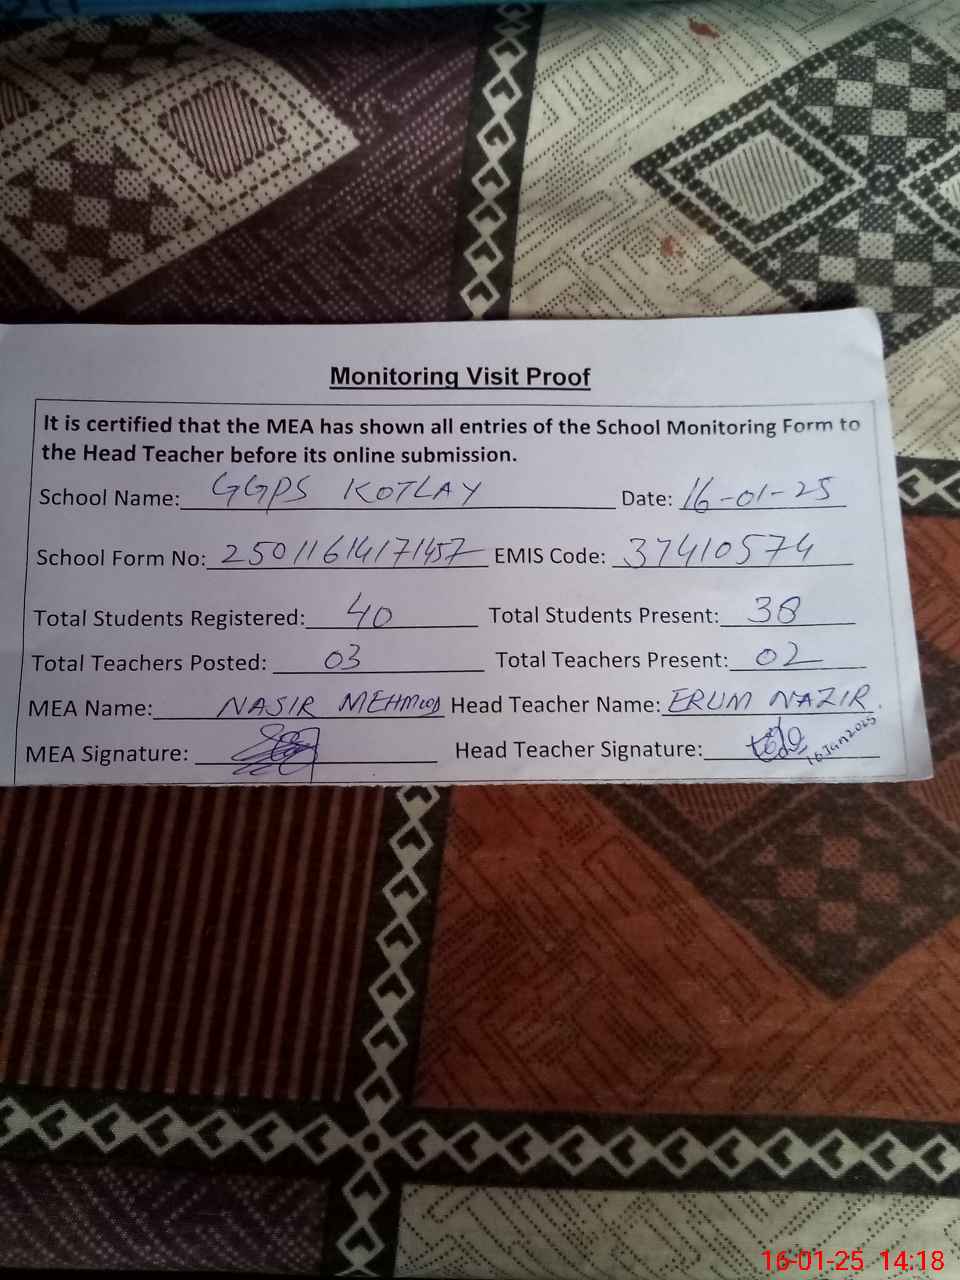 Monitoring Visit Proof
It is certified that the MEA has shown all entries of the School Monitoring Form to
the Head Teacher before its online submission.
School Name: GGPS KOTLAY Date: 16-01-25
School Form No: 25011614171457 EMIS Code: 37410574
Total Students Registered: 40 Total Students Present: 38
Total Teachers Posted: 03 Total Teachers Present: 02
MEA Name: NASIR MEHMOOD Head Teacher Name: ERUM NAZIR
MEA Signature: Head Teacher Signature: 16 Jan 2025
16-01-25 14:18